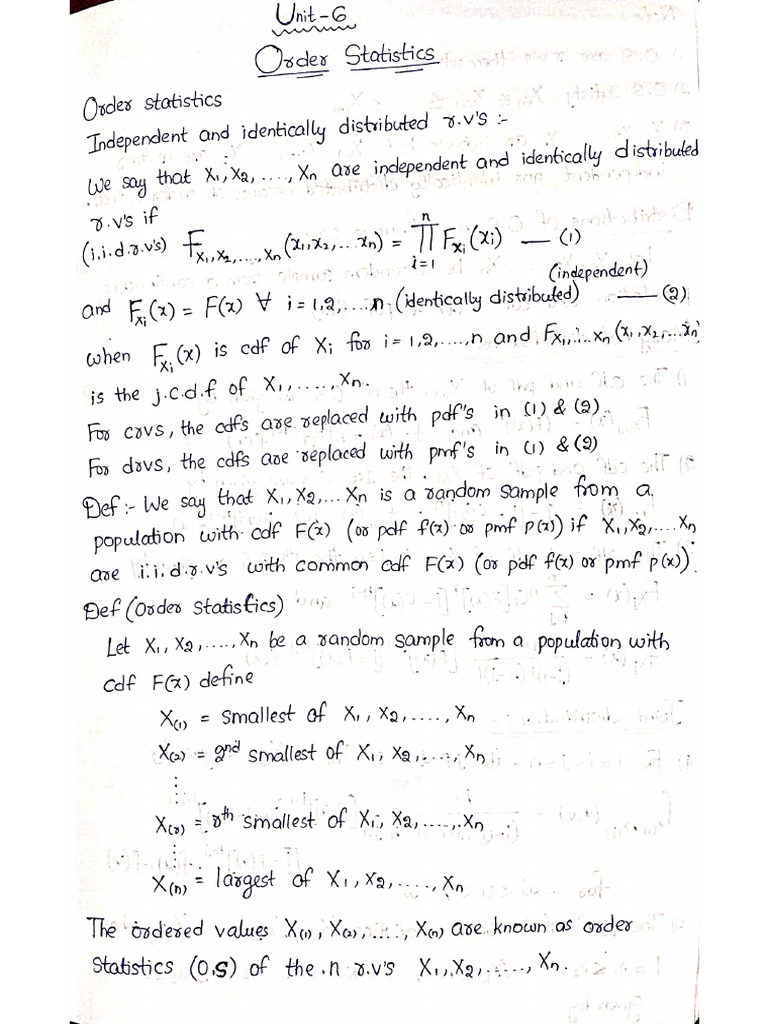 Unit-6
Order Statistics
Order statistics
Independent and identically distributed r.v's :-
We say that X₁, X₂, ...., Xn are independent and identically distributed
r.v's if
(i.i.d.r.v's) F_{X₁,X₂,....,Xn}(x₁,x₂,...xn) = ∏_{i=1}^{n} F_{Xi}(xi) — (1)
(independent)
and F_{Xi}(x) = F(x) ∀ i = 1,2,.....n. (identically distributed) — (2)
when F_{Xi}(x) is cdf of Xi for i = 1,2,....,n and F_{X₁,...Xn}(x₁,x₂,...xn)
is the j.c.d.f of X₁,.....,Xn.
For crvs, the cdfs are replaced with pdf's in (1) & (2).
For drvs, the cdfs are replaced with pmf's in (1) & (2)
Def :- We say that X₁, X₂,... Xn is a random sample from a
population with cdf F(x) (or pdf f(x) or pmf p(x)) if X₁,X₂,....Xn
are i.i.d.r.v's with common cdf F(x) (or pdf f(x) or pmf p(x)).
Def (Order Statistics)
Let X₁, X₂,....,Xn be a random sample from a population with
cdf F(x) define
X(1) = smallest of X₁, X₂,....., Xn
X(2) = 2nd smallest of X₁, X₂,....., Xn
⋮
X(r) = rth smallest of X₁, X₂,....., Xn
⋮
X(n) = largest of X₁, X₂,....., Xn
The ordered values X(1), X(2),....., X(n) are known as order
Statistics (O.S) of the n r.v's X₁, X₂,....., Xn.